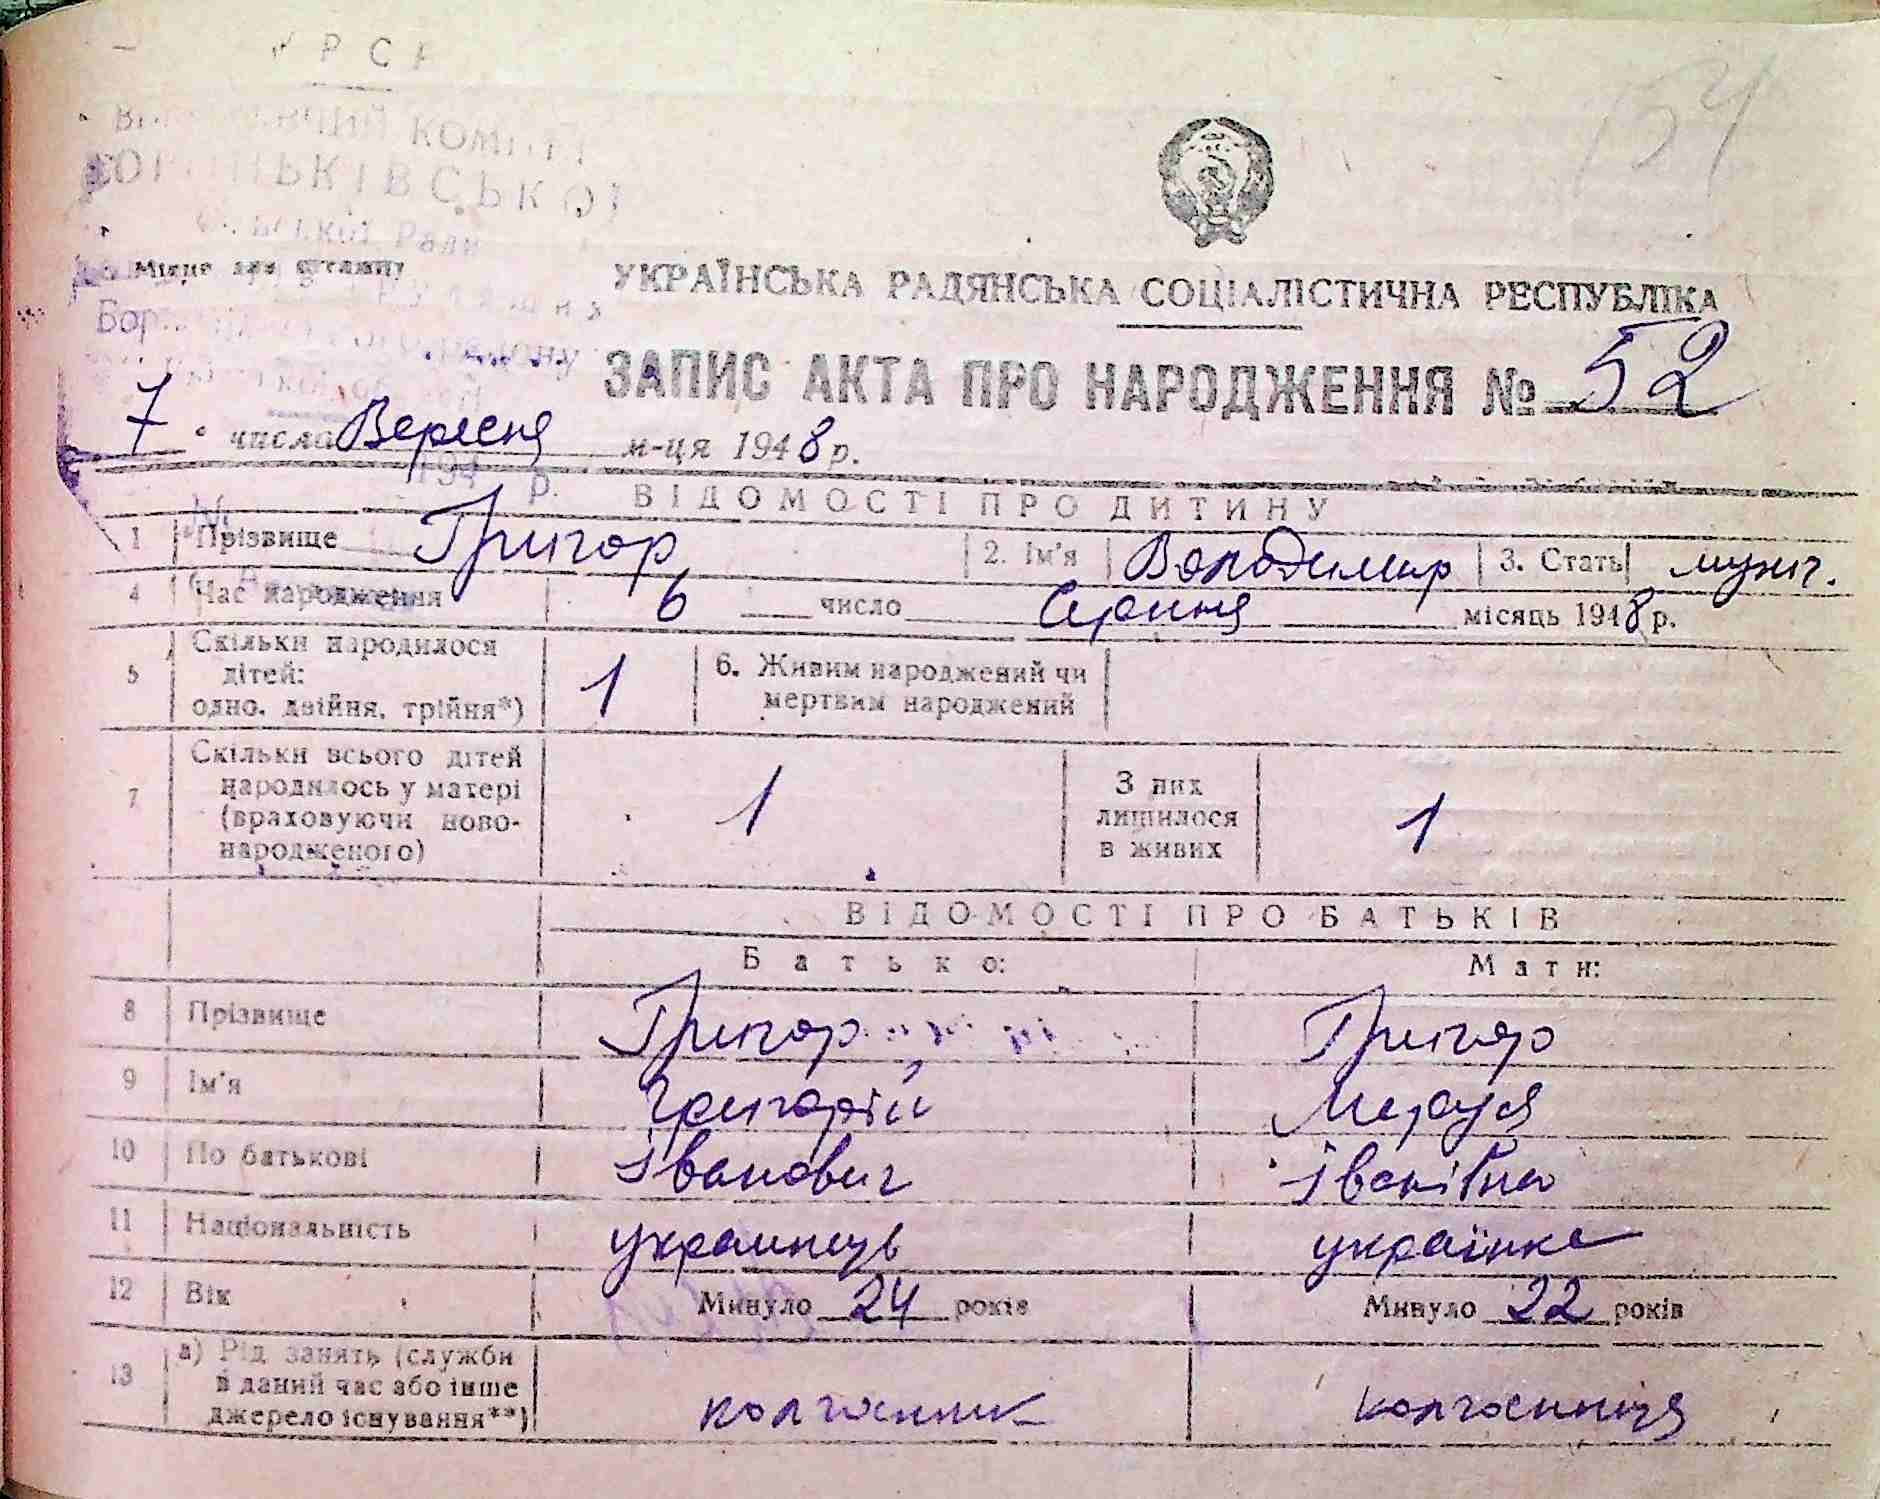 РСР
154
КОМІТЕТ
Ради
Місце для штампу
УКРАЇНСЬКА РАДЯНСЬКА СОЦІАЛІСТИЧНА РЕСПУБЛІКА
району
ЗАПИС АКТА ПРО НАРОДЖЕННЯ № 52
7 числа Вересня м-ця 1948 р.
194 р.
ВІДОМОСТІ ПРО ДИТИНУ
1 Прізвище Григор 2. Ім'я Володимир 3. Стать мужч.
4 Час народження 6 число Серпня місяць 1948 р.
5 Скільки народилося дітей: одно, двійня, трійня*) 1 6. Живим народжений чи мертвим народжений
7 Скільки всього дітей народилось у матері (враховуючи новонародженого) 1 З них лишилося в живих 1
ВІДОМОСТІ ПРО БАТЬКІВ
Батько: Мати:
8 Прізвище Григор Григор
9 Ім'я Григорій Маруся
10 По батькові Іванович Іванівна
11 Національність украинець українка
12 Вік Минуло 24 років Минуло 22 років
13 а) Рід занять (служби в даний час або інше джерело існування**) колгоспник колгоспниця